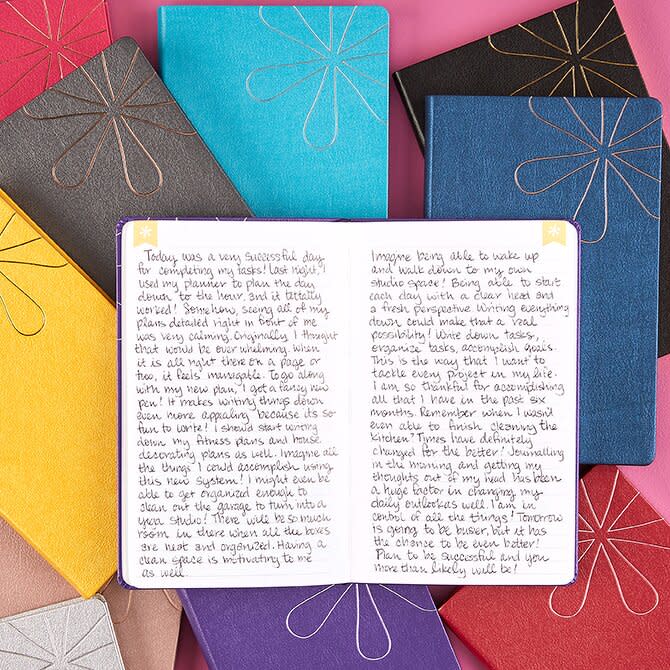 Today was a very successful day
for completing my tasks! Last night, I
used my planner to plan the day
down to the hour, and it totally
worked! Somehow, seeing all of my
plans detailed right in front of me
was very calming. Originally I thought
that would be over whelming. When
it is all right there on a page or
two, it feels manigable. To go along
with my new plan, I got a fancy new
pen! It makes writing things down
even more appealing because its so
fun to write! I should start writing
down my fitness plans and house
decorating plans as well. Imagine all
the things I could accomplish using
this new system! I might even be
able to get organized enough to
clean out the garage to turn into a
yoga studio! There will be so much
room in there when all the boxes
are neat and organized. Having a
clean space is motivating to me
as well.
Imagine being able to wake up
and walk down to my own
studio space! Being able to start
each day with a clear head and
a fresh perspective. Writing everything
down could make that a real
possibility! Write down tasks,
organize tasks, accomplish goals.
This is the way that I want to
tackle every project in my life.
I am so thankful for accomplishing
all that I have in the past six
months. Remember when I wasn't
even able to finish cleaning the
kitchen? Times have definitely
changed for the better! Journalling
in the morning and getting my
thoughts out of my head has been
a huge factor in changing my
daily outlook as well. I am in
control of all the things! Tomorrow
is going to be busier, but it has
the chance to be even better!
Plan to be successful and you
more than likely will be!